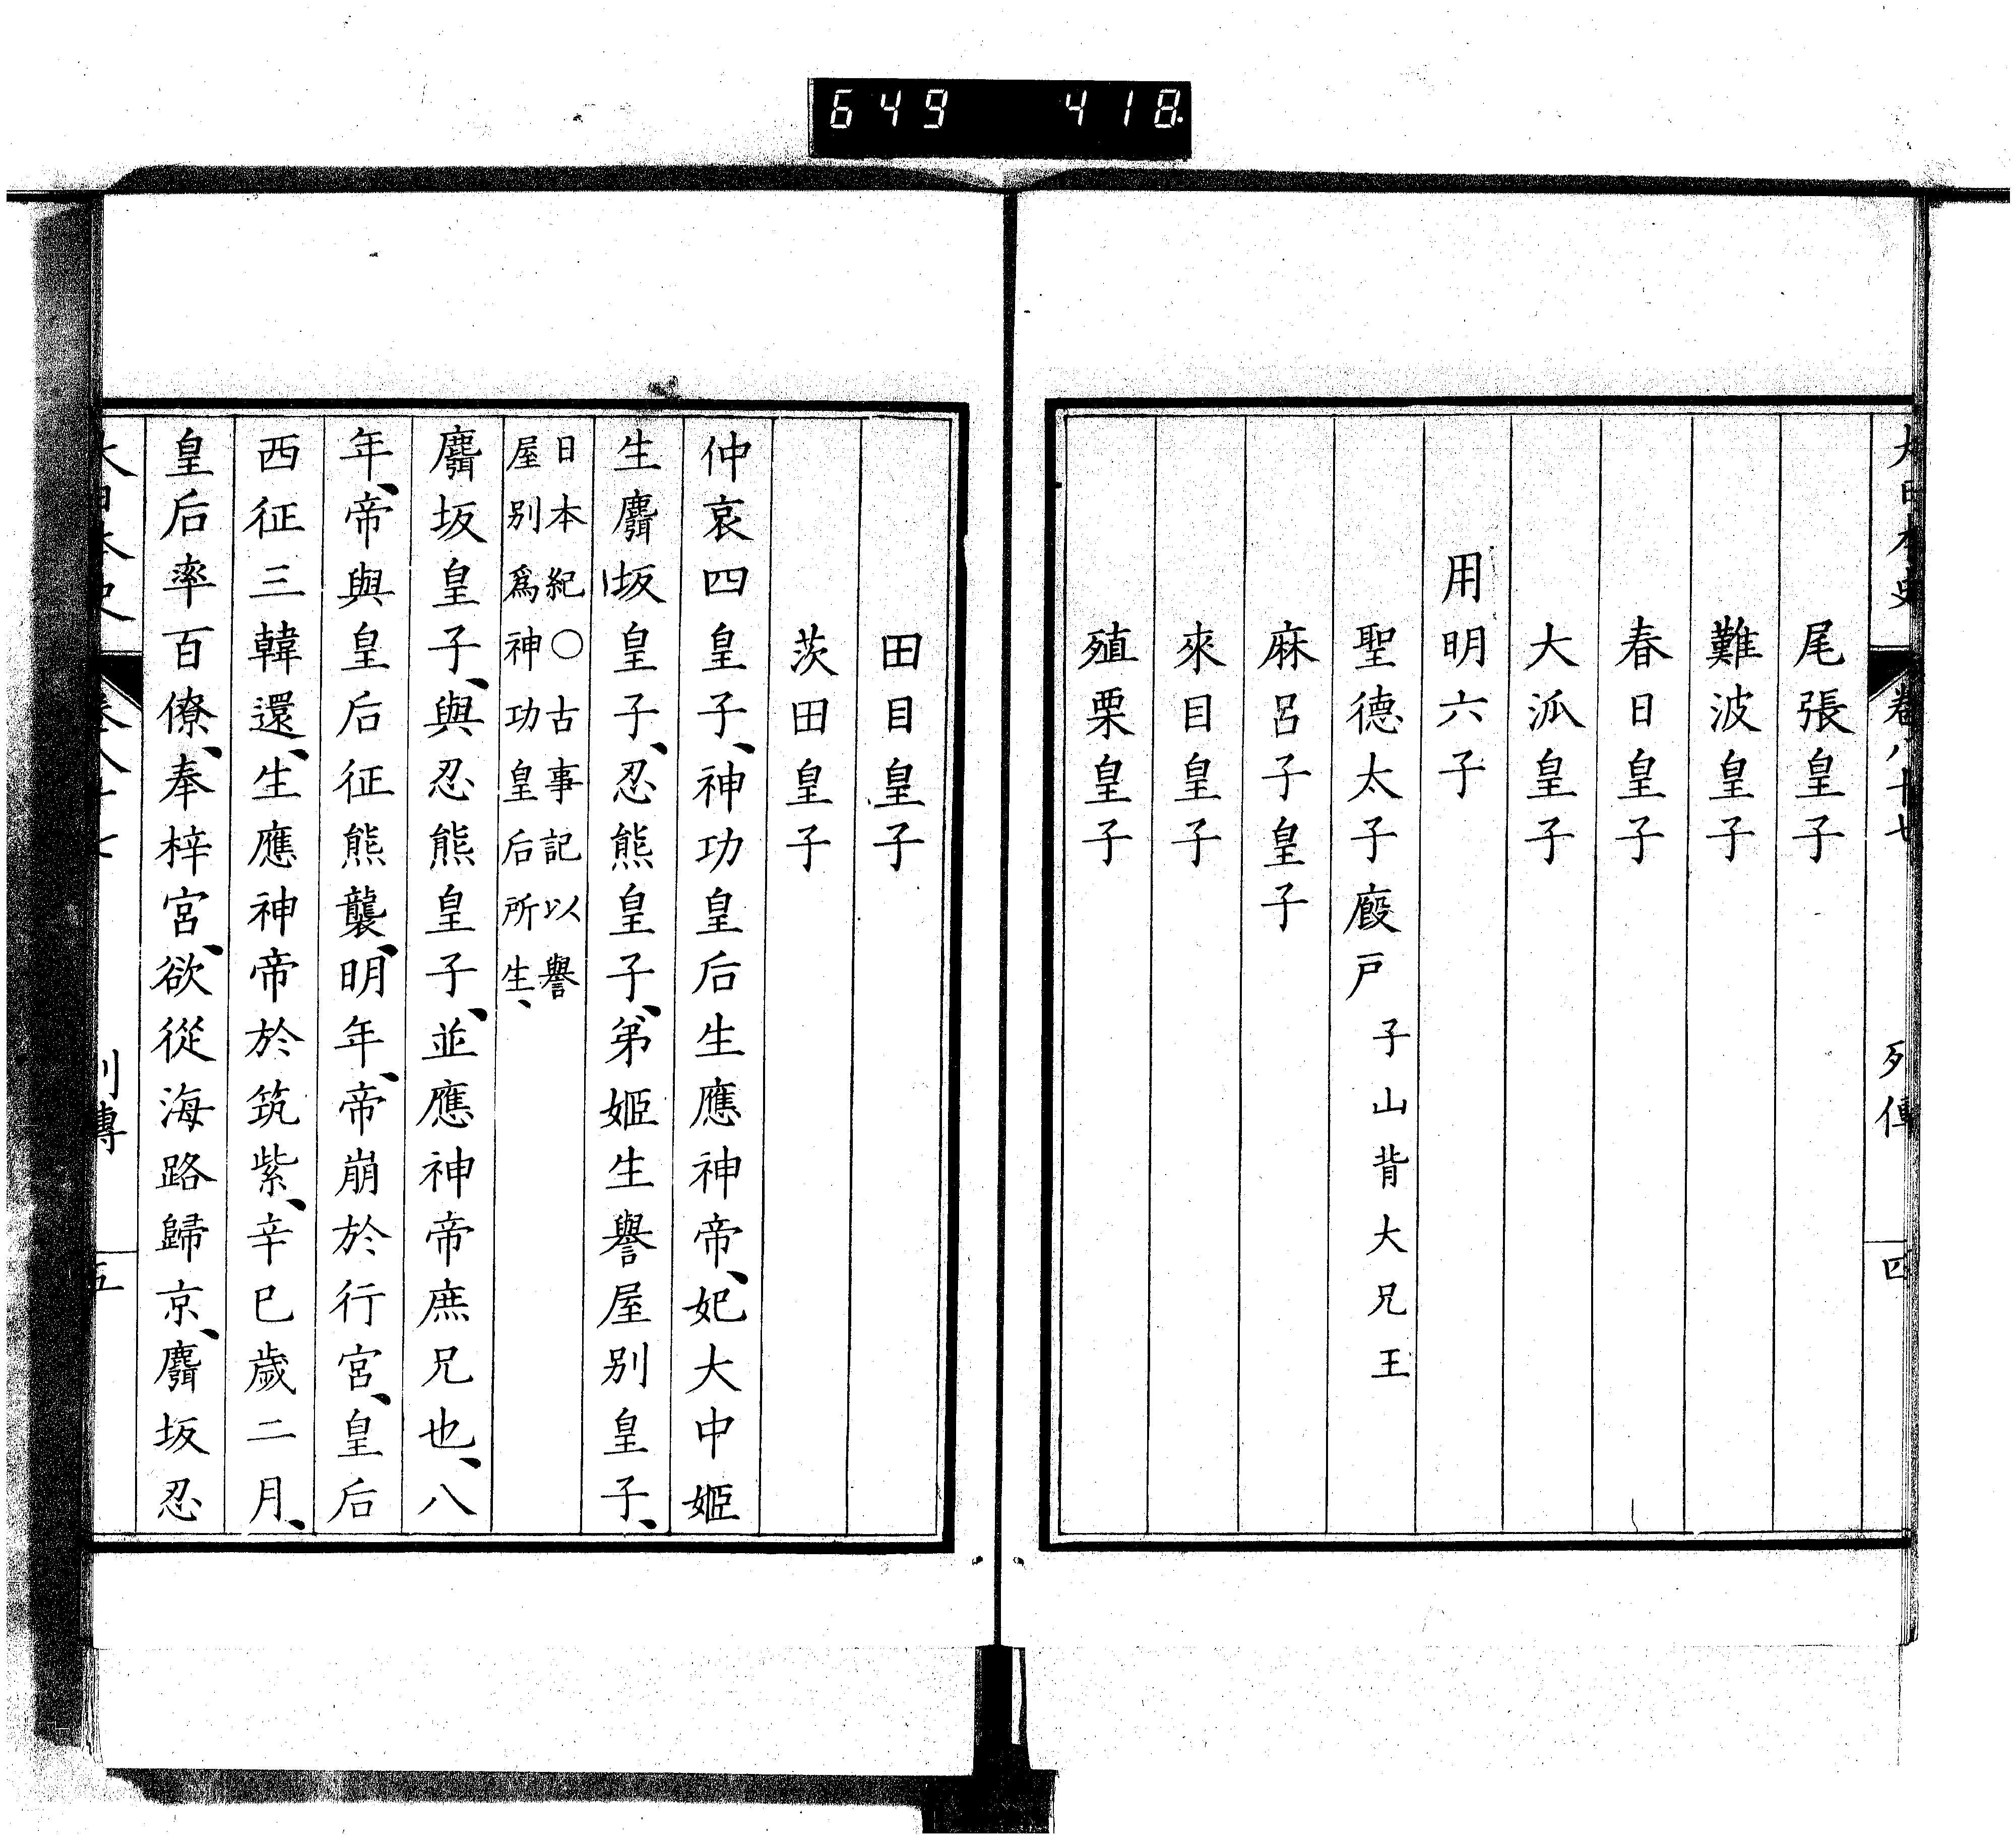 649 418
大日本史 卷八十七 列傳 四
尾張皇子
難波皇子
春日皇子
大派皇子
用明六子
聖德太子廄戶 子山背大兄王
麻呂子皇子
來目皇子
殖栗皇子
田目皇子
茨田皇子
仲哀四皇子、神功皇后生應神帝、妃大中姬
生麛坂皇子、忍熊皇子、弟姬生譽屋別皇子、
日本紀○古事記以譽
屋別爲神功皇后所生、
麛坂皇子、與忍熊皇子、並應神帝庶兄也、八
年、帝與皇后征熊襲、明年、帝崩於行宮、皇后
西征三韓還、生應神帝於筑紫、辛巳歲二月、
皇后率百僚、奉梓宮、欲從海路歸京、麛坂忍
大日本史 卷八十七 列傳 五